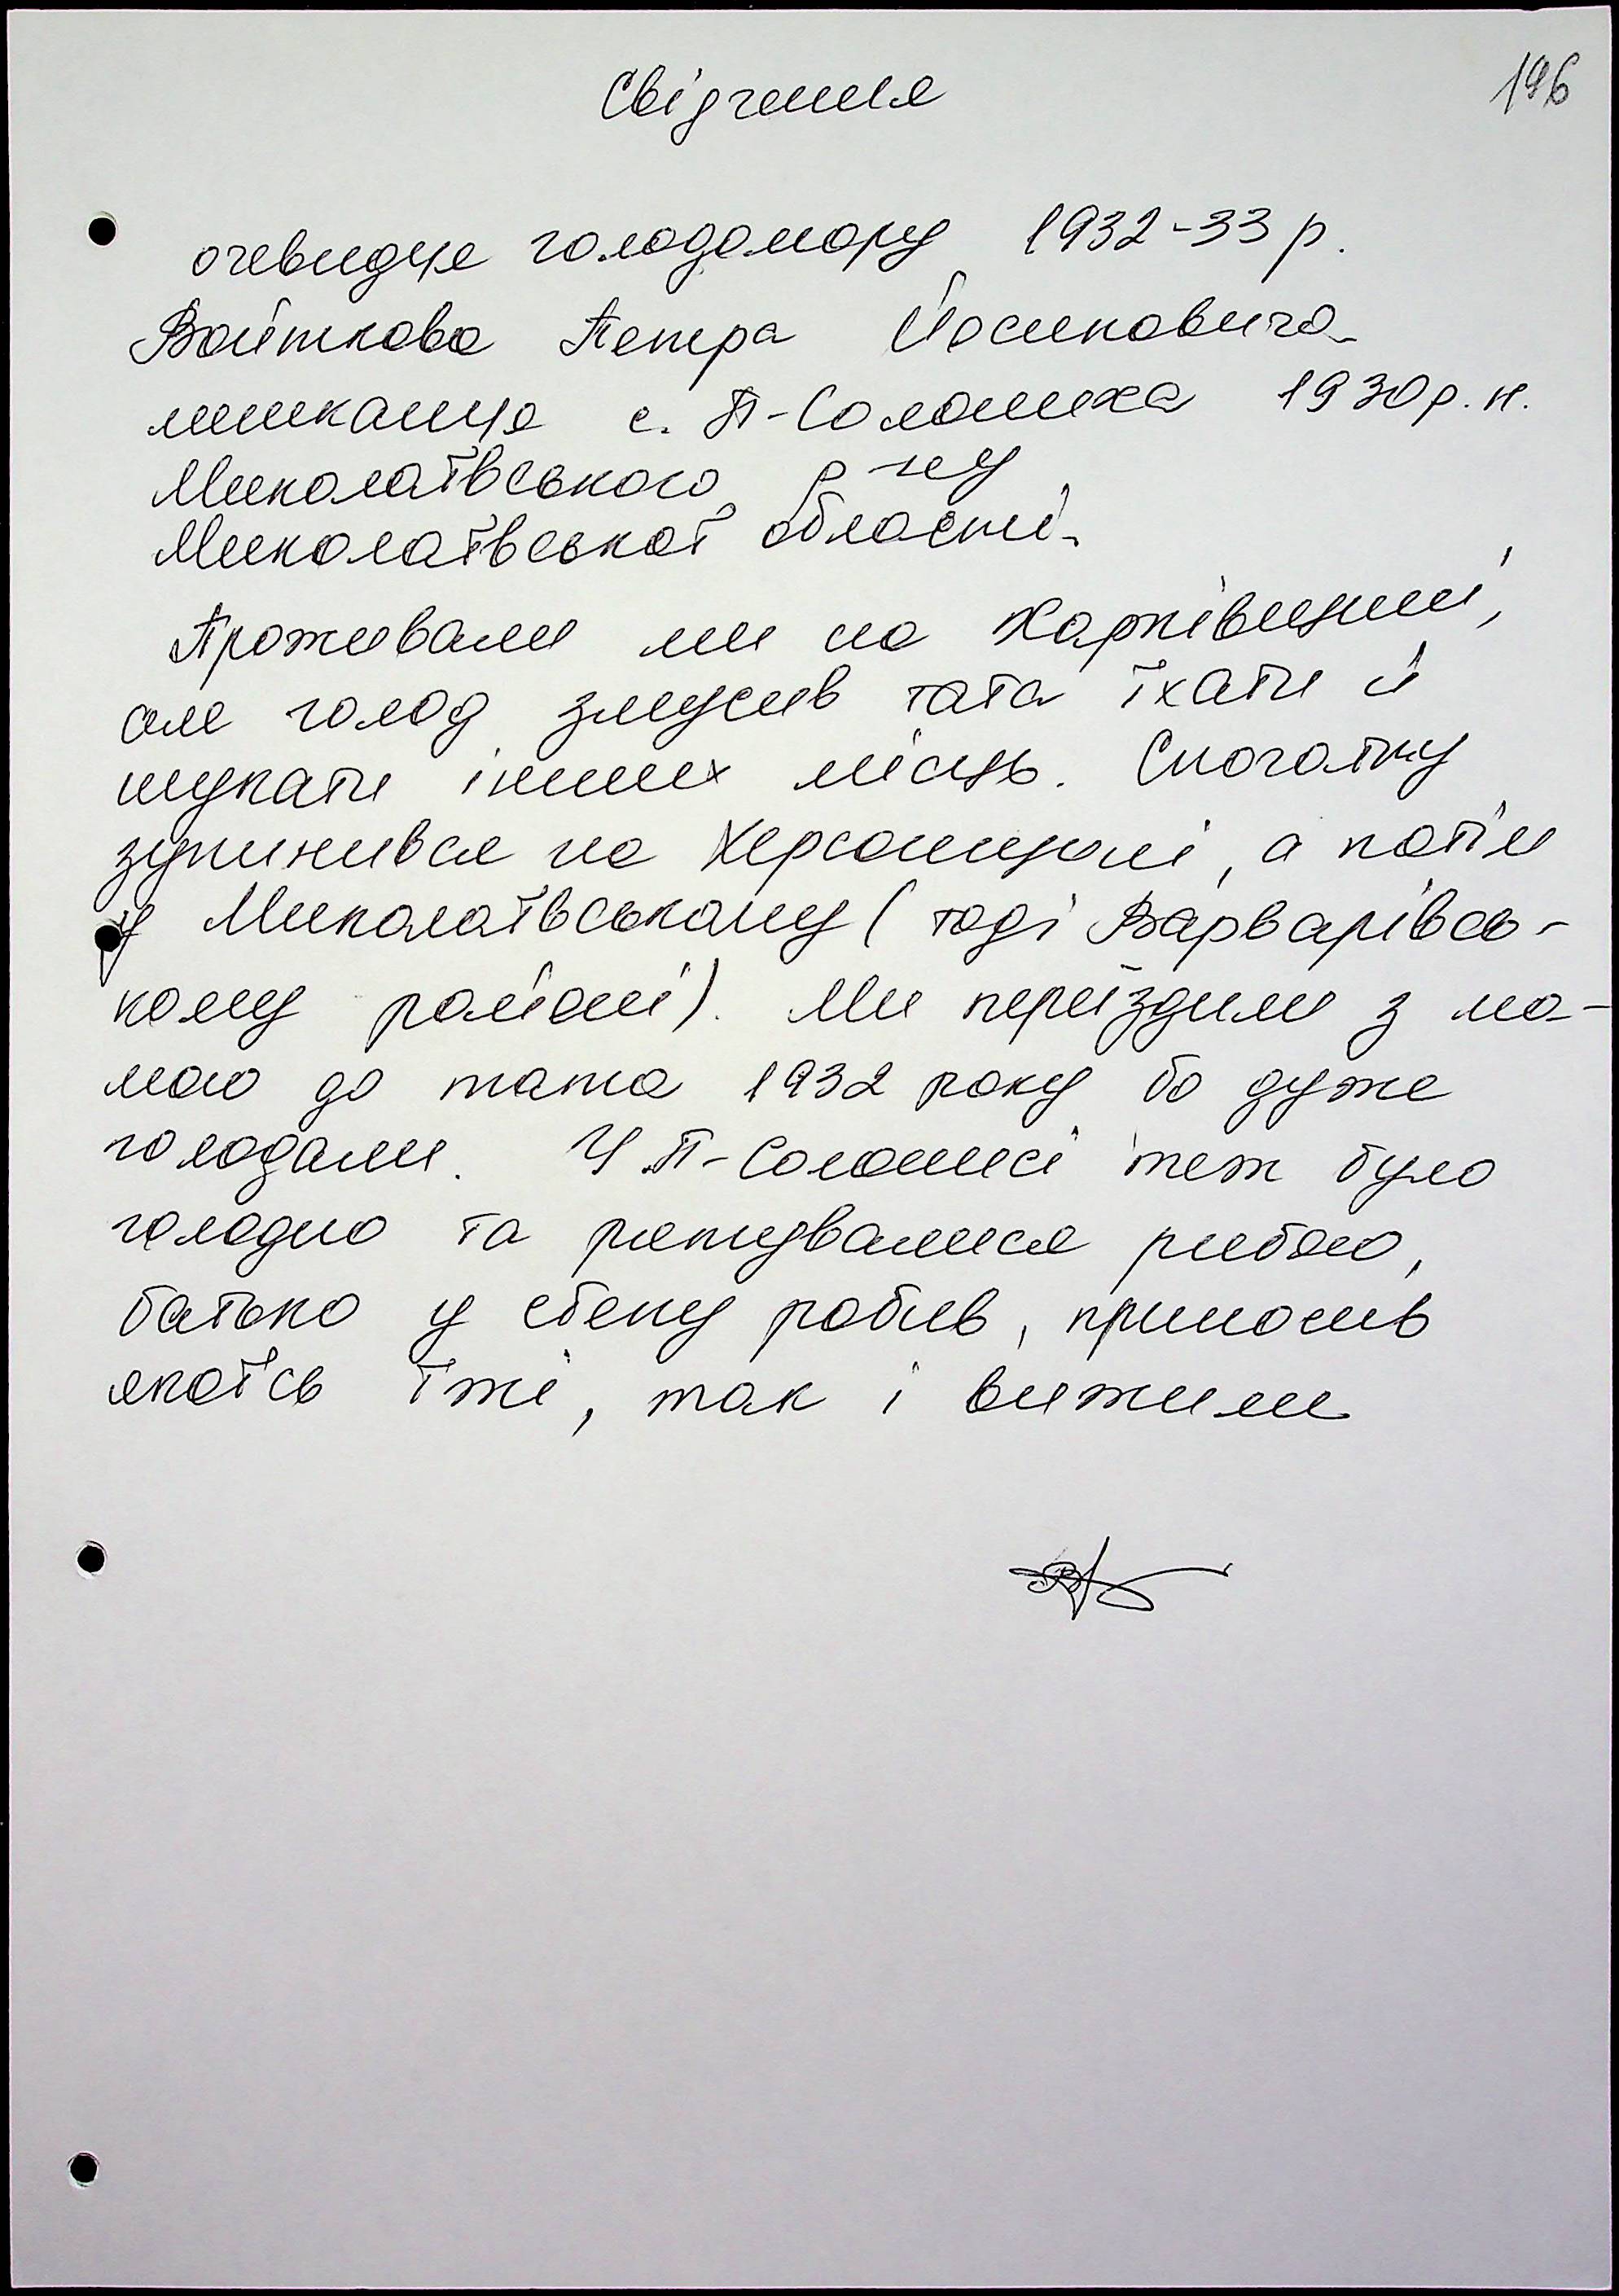 196
Свідчення
очевидця голодомору 1932-33 р.
Войткова Петра Йосиповича
мешканця с. П-Солониха 1930 р. н.
Миколаївського р-ну
Миколаївської області.
Проживали ми на Харківщині,
але голод змусив тата їхати й
шукати інших місць. Спочатку
зупинився на Херсонщині, а потім
у Миколаївському (тоді Варварівсь-
кому районі). Ми переїздили з ма-
мою до тата 1932 року бо дуже
голодали. У П-Солонисі теж було
голодно та рятувалися рибою,
батько у сбеку робив, приносив
якоїсь їжі, так і вижили